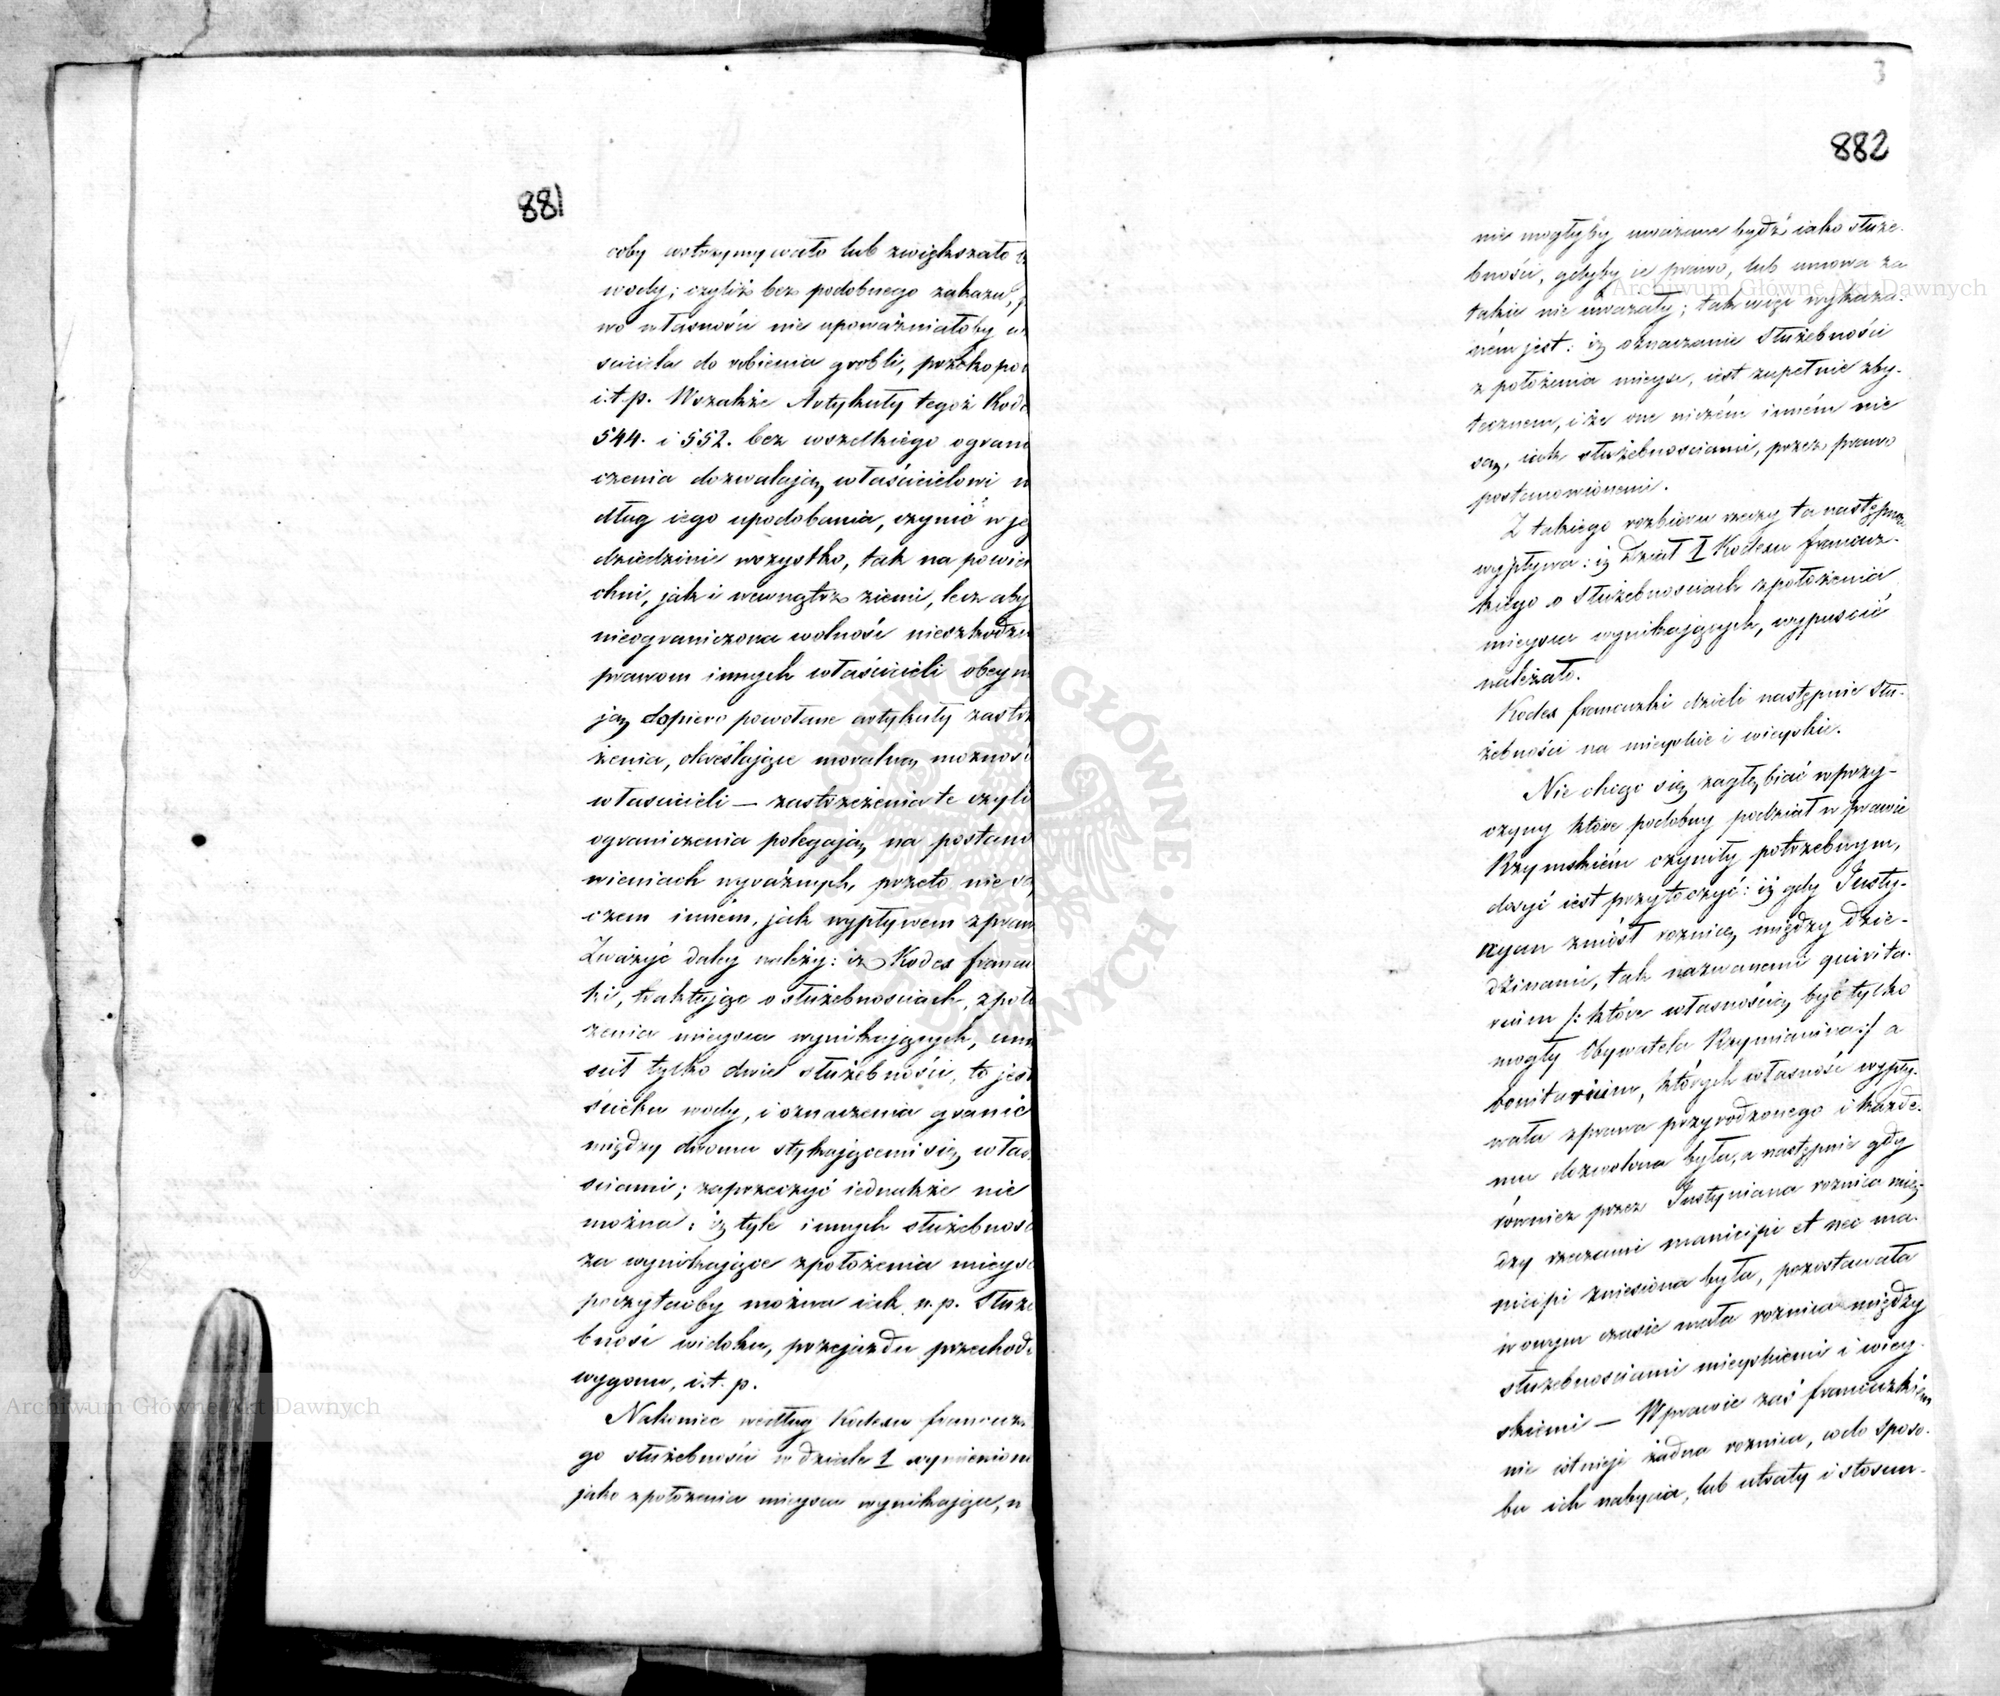 881
coby wstrzymywało lub zwiększało
wody; czyliż bez podobnego zakazu,
wo własności nie upoważniałoby
ściciela do robienia grobli, przekopów
i.t.p. Wszakże Artykuły tegoż Kode
544. i 552. bez wszelkiego ograni
czenia dozwalają właścicielowi w
dług iego upodobania, czynić w je
dziedzinie wszystko, tak na powierz
chni, jak i wewnątrz ziemi, lecz aby
nieograniczona wolność nieszkodzi
prawom innych właścicieli obeym
ją dopiero powołane artykuły zastrz
żenia, określające moralną możność
właścicieli — zastrzeżenia te czyli
ograniczenia polegają na postano
wieniach wyraźnych, przeto nie są
czem inném, jak wypływem z praw
Zważyć daley należy: iż Kodex francu
ki, traktując o służebnościach, z poło
żenia mieysca wynikających, umie
ścił tylko dwie służebności, to jest
ścieku wody, i oznaczenia granic
między dwoma stykającemi się włas
ściami; zaprzeczyć iednakże nie
można: iż tyle innych służebnośc
za wynikające z położenia mieysc
poczytaćby można iak n.p. Służe
bność widoku, przejazdu przechodu
wygonu, i.t.p.
Nakoniec według Kodexu francuzk
go służebności w dziale I wymienione
jako z położenia mieysca wynikające, n
3
882
nie mogłyby uważane bydź iako służe-
bności, gdyby ie prawo, lub umowa za
takie nie uważały; tak więc wykaza-
ném jest: iż oznaczanie Służebności
z położenia mieysc, iest zupełnie zby-
tecznem, i że one niczém inném nie
są, iak służebnościami, przez prawo
postanowionemi.
Z takiego rozbioru rzeczy ta następnie
wypływa: iż Dział I Kodexu francuz-
kiego o Służebnościach z położenia
mieysca wynikających, wypuścić
należało.
Kodex francuzki dzieli następnie Słu-
żebności na mieyskie i wieyskie.
Nie chcąc się zagłębiać w przy-
czyny które podobny podział w prawie
Rzymskiém czyniły potrzebnym,
dosyć iest przytoczyć: iż gdy Justy-
nyan zniósł roznicę między dzie-
dzinami, tak nazwanemi quirita-
rium /: które własnością być tylko
mogły Obywatela Rzymianina :/ a
bonitarium, których własność wypły-
wała z prawa przyrodzonego i każde-
mu dozwolona była, a następnie gdy
również przez Justyniana roznica mię-
dzy rzeczami mancipi et nec man-
cipi zniesiona była, pozostawała
w owym czasie mała roznica między
służebnościami mieyskiemi i wiey-
skiemi — W prawie zaś francuzkiém
nie istnieje żadna roznica, co do sposo-
bu ich nabycia, lub utraty i stosun-